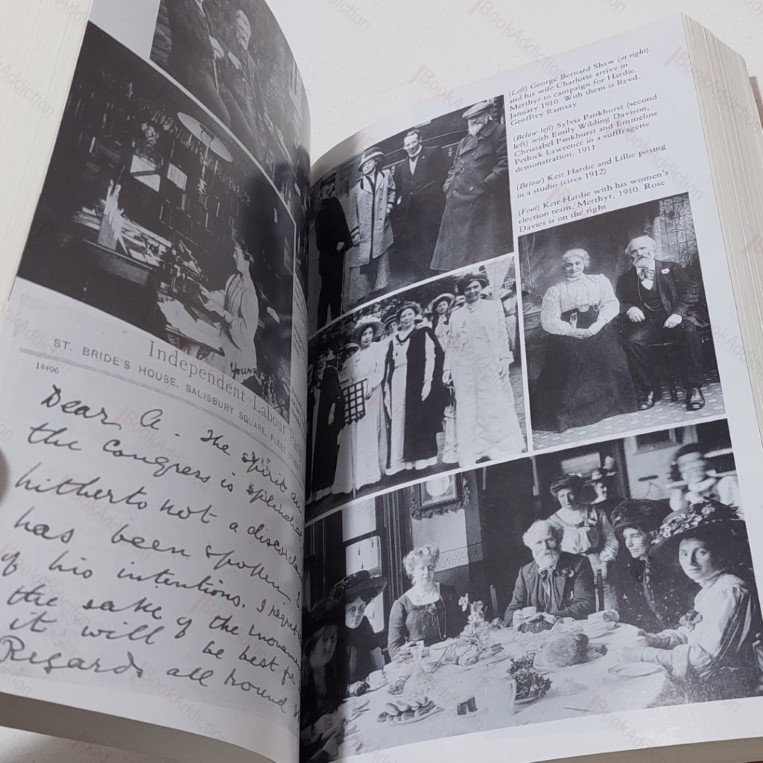 Yours
Independent Labour
ST. BRIDE'S HOUSE, SALISBURY SQUARE, FLEET
14496
Dear A. The spirit
the Congress is splendid
hitherto not a discord
has been spoken
of his intentions. I regret
the sake of the movem
it will be best for
Regards all round
(Left) George Bernard Shaw (at right)
and his wife Charlotte arrive in
Merthyr to campaign for Hardie,
January 1910. With them is Revd.
Geoffrey Ramsay
(Below left) Sylvia Pankhurst (second
left) with Emily Wilding Davison,
Christabel Pankhurst and Emmeline
Pethick Lawrence in a suffragette
demonstration, 1911
(Below) Keir Hardie and Lillie posing
in a studio (circa 1912)
(Foot) Keir Hardie with his women's
election team, Merthyr, 1910. Rose
Davies is on the right
BookAddiction